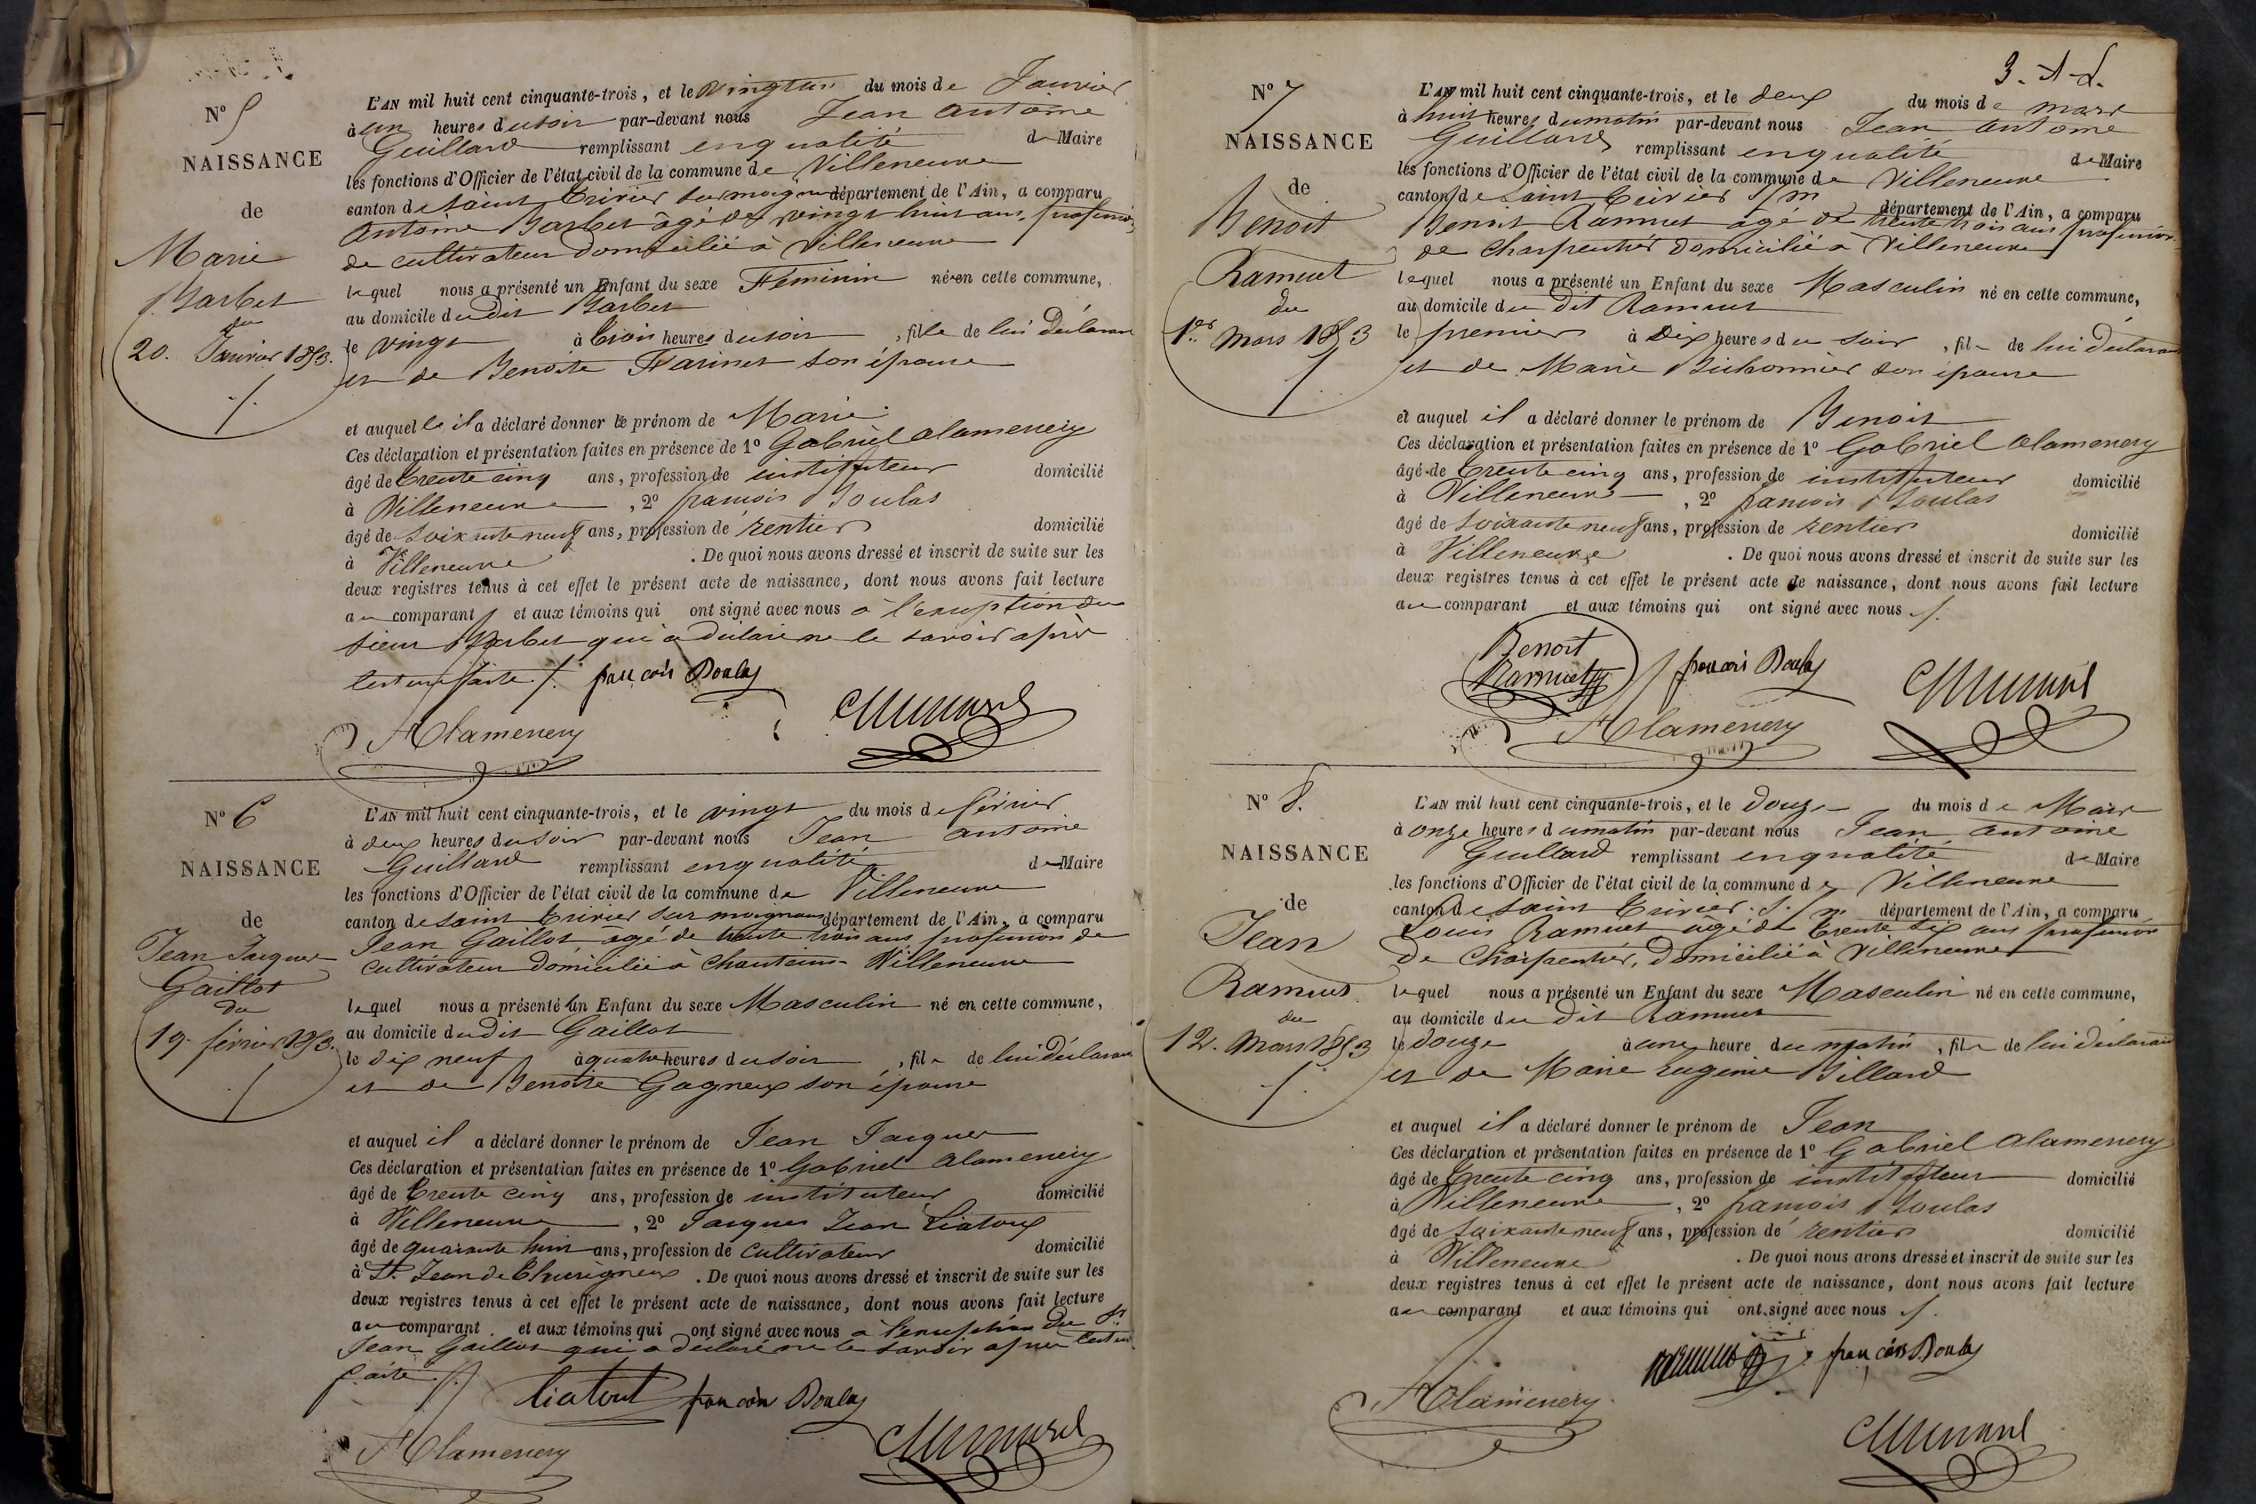 N° 5
NAISSANCE
de
Marie
Barbet
du
20. Janvier 1853.
L'AN mil huit cent cinquante-trois, et le vingt un du mois de Janvier
à un heures du soir par-devant nous Jean Antoine
Guillard remplissant en qualité de Maire
les fonctions d'Officier de l'état civil de la commune de Villeneuve
canton de Saint Trivier sur moignans département de l'Ain, a comparu
Antoine Barbet âgé de vingt huit ans, profession
de cultivateur domicilié à Villeneuve
lequel nous a présenté un Enfant du sexe Féminin né en cette commune,
au domicile du dit Barbet
le vingt à trois heures du soir, fille de lui déclarant
et de Benoite Farinet son épouse
et auquelle il a déclaré donner le prénom de Marie
Ces déclaration et présentation faites en présence de 1° Gabriel Alamenery
âgé de trente cinq ans, profession de instituteur domicilié
à Villeneuve, 2° françois Boulas
âgé de soixante neuf ans, profession de rentier domicilié
à Villeneuve. De quoi nous avons dressé et inscrit de suite sur les
deux registres tenus à cet effet le présent acte de naissance, dont nous avons fait lecture
au comparant et aux témoins qui ont signé avec nous à l'exception du
sieur Barbet qui a déclaré ne le savoir après
lecture faite ./. françois Boulas
Alamenery
N° 6
NAISSANCE
de
Jean Jacques
Gaillot
du
19. février 1853.
L'AN mil huit cent cinquante-trois, et le vingt du mois de février
à deux heures du soir par-devant nous Jean Antoine
Guillard remplissant en qualité de Maire
les fonctions d'Officier de l'état civil de la commune de Villeneuve
canton de Saint Trivier sur moignans département de l'Ain, a comparu
Jean Gaillot âgé de trente trois ans profession de
cultivateur domicilié à Chanteins Villeneuve
lequel nous a présenté un Enfant du sexe Masculin né en cette commune,
au domicile du dit Gaillot
le dix neuf à quatre heures du soir, fils de lui déclarant
et de Benoite Gagneux son épouse
et auquel il a déclaré donner le prénom de Jean Jacques
Ces déclaration et présentation faites en présence de 1° Gabriel Alamenery
âgé de trente cinq ans, profession de instituteur domicilié
à Villeneuve, 2° Jacques Jean Liatoux
âgé de quarante huit ans, profession de cultivateur domicilié
à St. Jean de Thurigneux. De quoi nous avons dressé et inscrit de suite sur les
deux registres tenus à cet effet le présent acte de naissance, dont nous avons fait lecture
au comparant et aux témoins qui ont signé avec nous à l'exception du Sr
Jean Gaillot qui a déclaré ne le savoir après lecture
faite ./.
Liatout françois Boulas
Alamenery
3. A-L.
N° 7
NAISSANCE
de
Benoit
Ramuet
du
1er Mars 1853
L'AN mil huit cent cinquante-trois, et le deux du mois de mars
à huit heures du matin par-devant nous Jean Antoine
Guillard remplissant en qualité de Maire
les fonctions d'Officier de l'état civil de la commune de Villeneuve
canton de Saint Trivier s/m département de l'Ain, a comparu
Benoit Ramuet âgé de trente trois ans profession
de Charpentier domicilié à Villeneuve
lequel nous a présenté un Enfant du sexe Masculin né en cette commune,
au domicile du dit Ramuet
le premier à dix heures du soir, fils de lui déclarant
et de Marie Bichonnier son épouse
et auquel il a déclaré donner le prénom de Benoit
Ces déclaration et présentation faites en présence de 1° Gabriel Alamenery
âgé de trente cinq ans, profession de instituteur domicilié
à Villeneuve, 2° françois Boulas
âgé de soixante neuf ans, profession de rentier domicilié
à Villeneuve. De quoi nous avons dressé et inscrit de suite sur les
deux registres tenus à cet effet le présent acte de naissance, dont nous avons fait lecture
au comparant et aux témoins qui ont signé avec nous ./.
Benoit
Ramuet françois Boulas
Alamenery
N° 8.
NAISSANCE
de
Jean
Ramuet
du
12. Mars 1853
L'AN mil huit cent cinquante-trois, et le douze du mois de Mars
à onze heures du matin par-devant nous Jean Antoine
Guillard remplissant en qualité de Maire
les fonctions d'Officier de l'état civil de la commune de Villeneuve
canton de Saint Trivier. s./m département de l'Ain, a comparu
Louis Ramuet âgé de trente six ans profession
de Charpentier, domicilié à Villeneuve
lequel nous a présenté un Enfant du sexe Masculin né en cette commune,
au domicile du dit Ramuet
le douze à une heure du matin, fils de lui déclarant
et de Marie Eugénie Billard
et auquel il a déclaré donner le prénom de Jean
Ces déclaration et présentation faites en présence de 1° Gabriel Alamenery
âgé de trente cinq ans, profession de instituteur domicilié
à Villeneuve, 2° françois Boulas
âgé de soixante neuf ans, profession de rentier domicilié
à Villeneuve. De quoi nous avons dressé et inscrit de suite sur les
deux registres tenus à cet effet le présent acte de naissance, dont nous avons fait lecture
au comparant et aux témoins qui ont signé avec nous ./.
françois Boulas
Alamenery